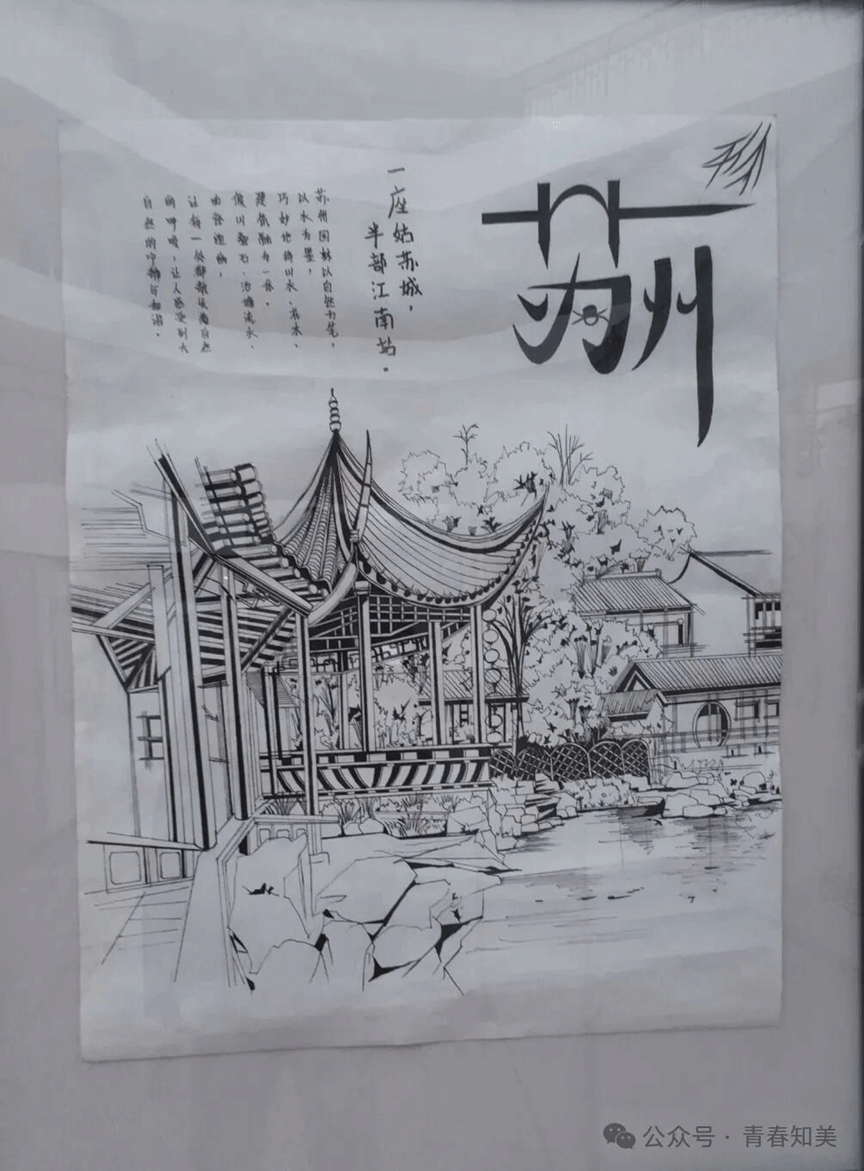 苏州
一座姑苏城，
半部江南站。
苏州园林以自然为笔，
以水为墨，
巧妙地将山水、花木、
建筑融为一体。
假山叠石、池塘流水、
曲径通幽，
让每一处都
自然
的呼吸，让人感受到大
自然的宁静与和谐。
公众号·青春知美